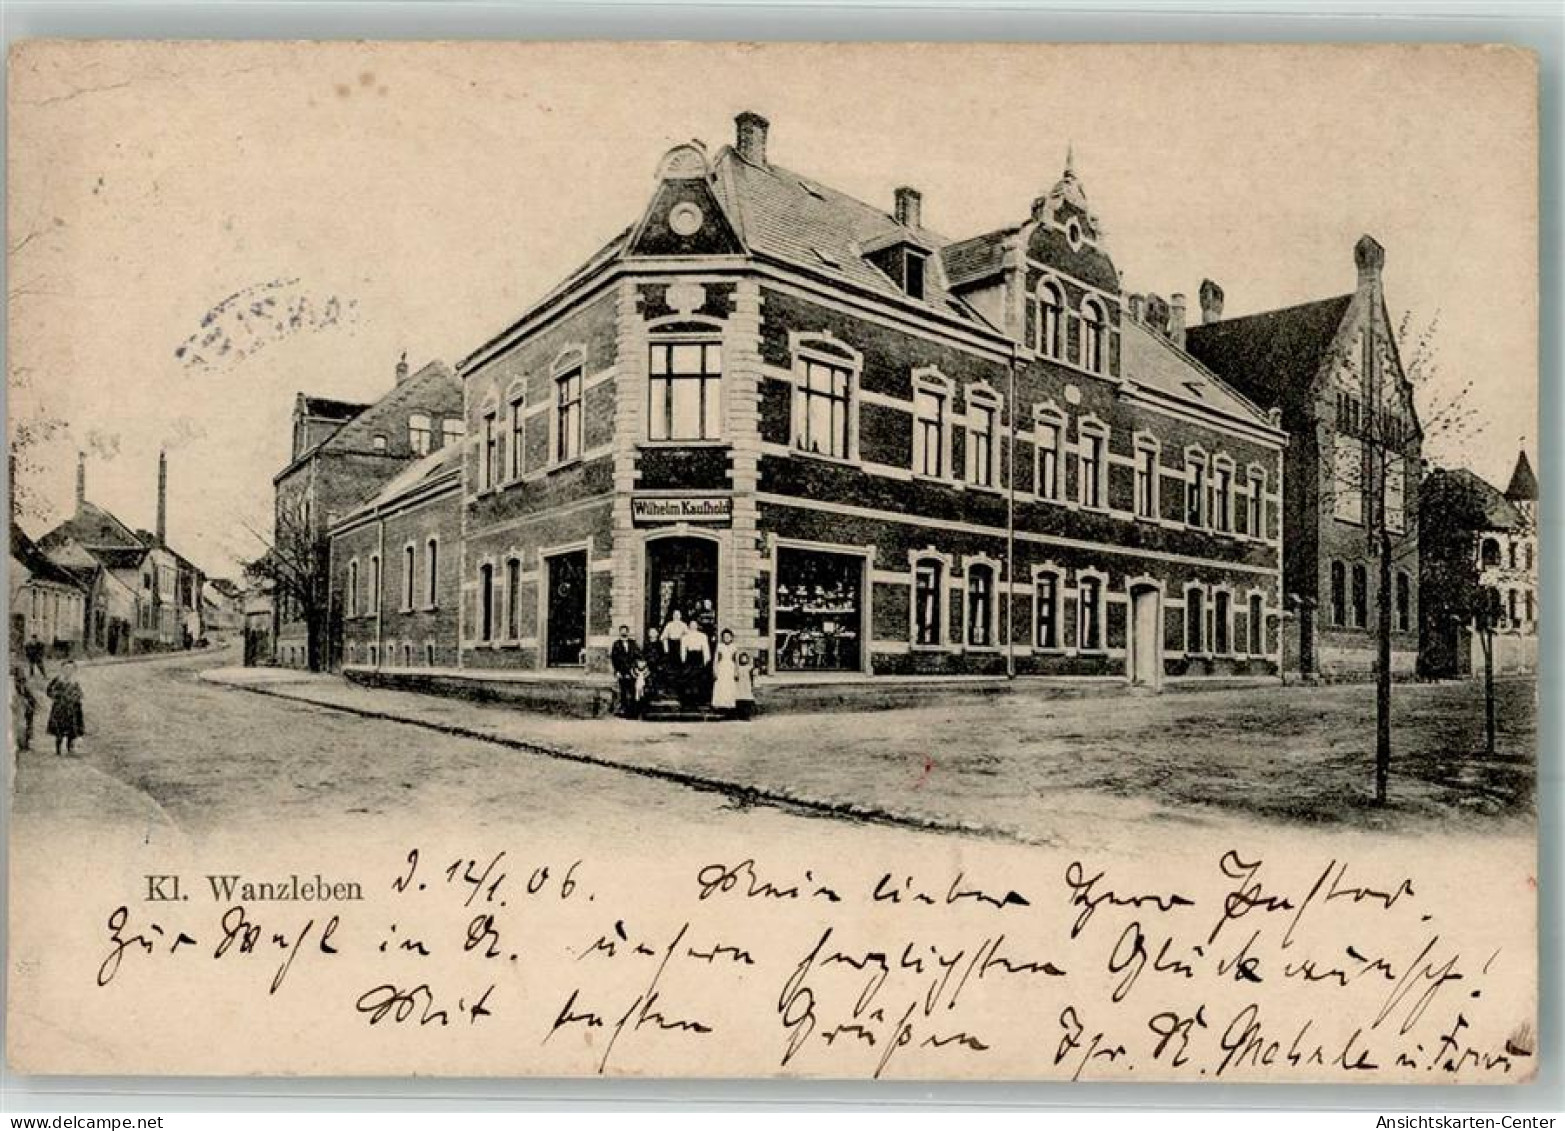 Wilhelm Kaufhold
Kl. Wanzleben d. 12/1. 06. Mein lieber Herr Pastor.
Zur Wahl in R. unsern herzlichsten Glückwunsch!
Mit besten Grüßen Ihr R. u. Frau
www.delcampe.net
Ansichtskarten-Center